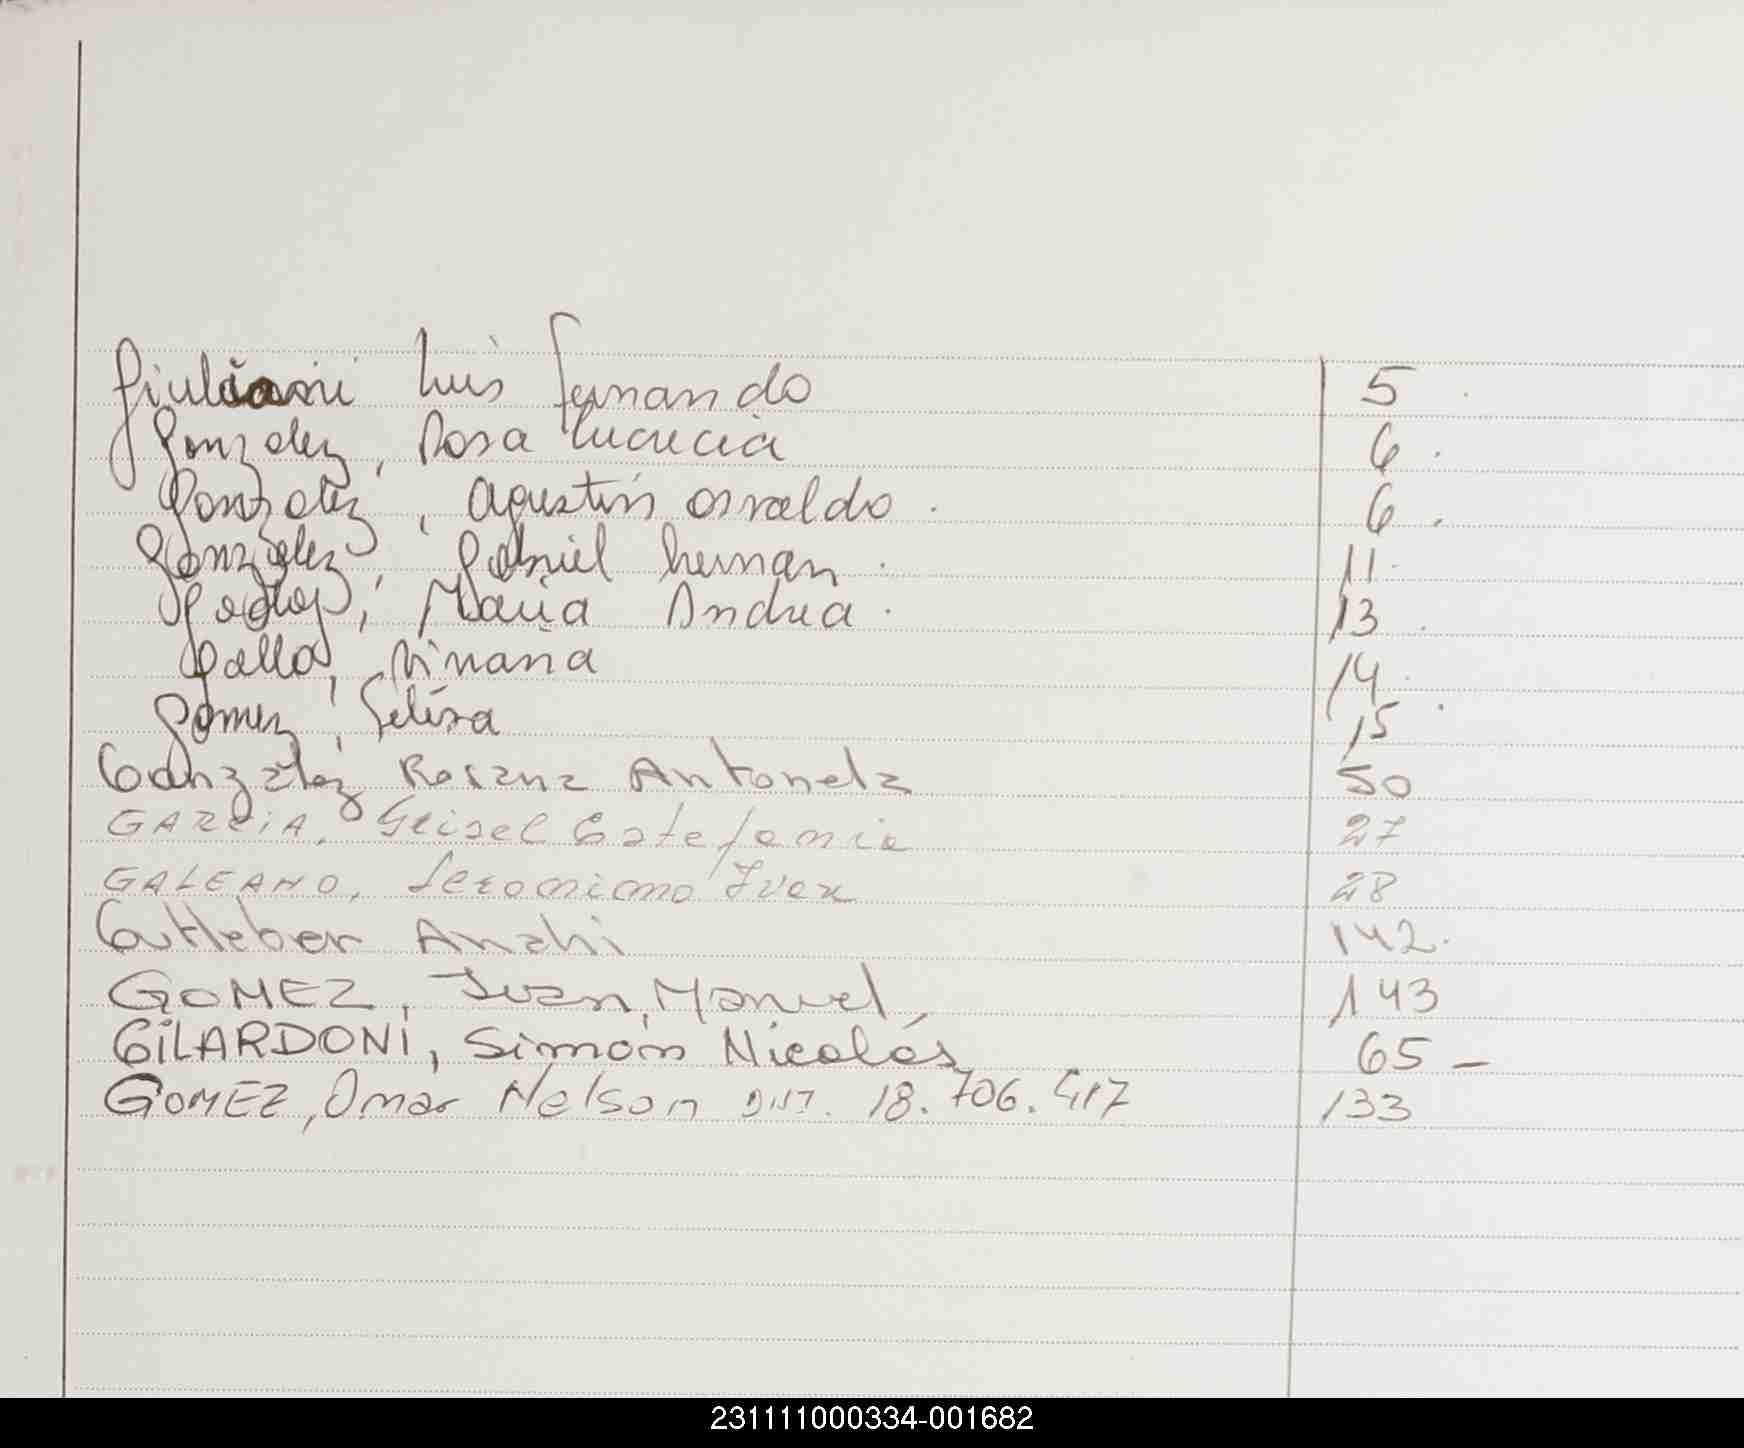 Giuliani Luis Fernando 5.
Gonzalez, Rosa Lucrecia 6.
Gonzalez, Agustin Osvaldo. 6.
Gonzalez, Gabriel hernan. 11.
Godoy, Maria Andrea. 13.
Gallo, Viviana 14.
Gomez, Felisa 15.
González Rosana Antonela 50
GARCIA, Geisel Estefania 27
GALEANO, Jeronimo Ivan 28
Gutleber Anahi 142.
GOMEZ, Juan Manuel 143
GILARDONI, Simón Nicolás 65 -
GOMEZ, Omar Nelson DNI. 18.706.417 133
231111000334-001682